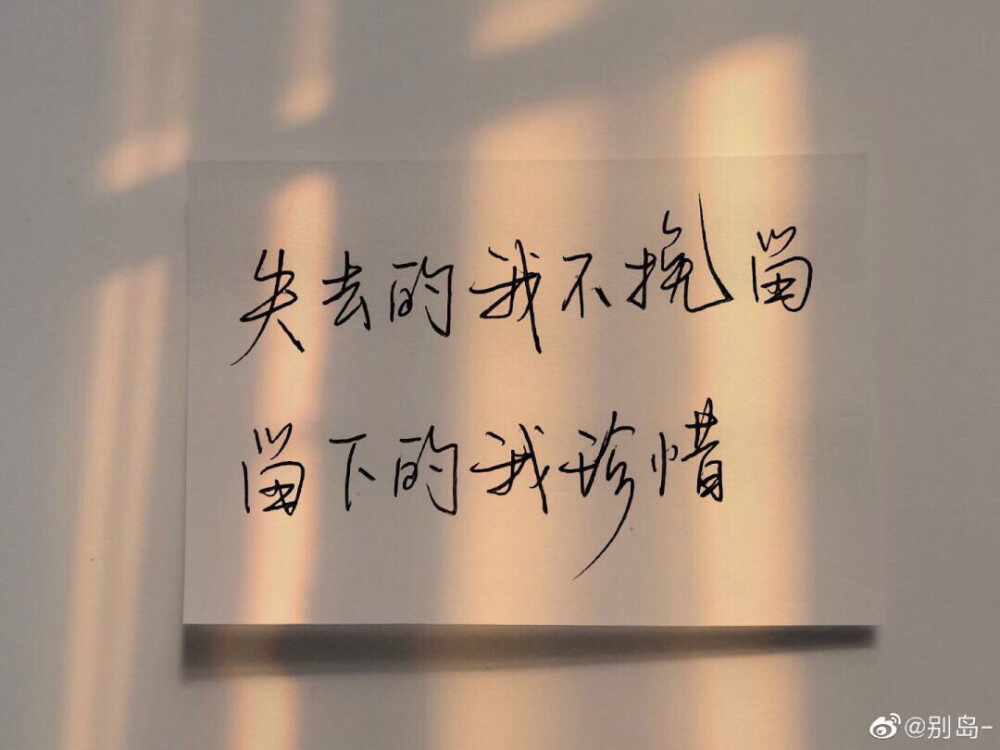 失去的我不挽留
留下的我珍惜
@别岛-